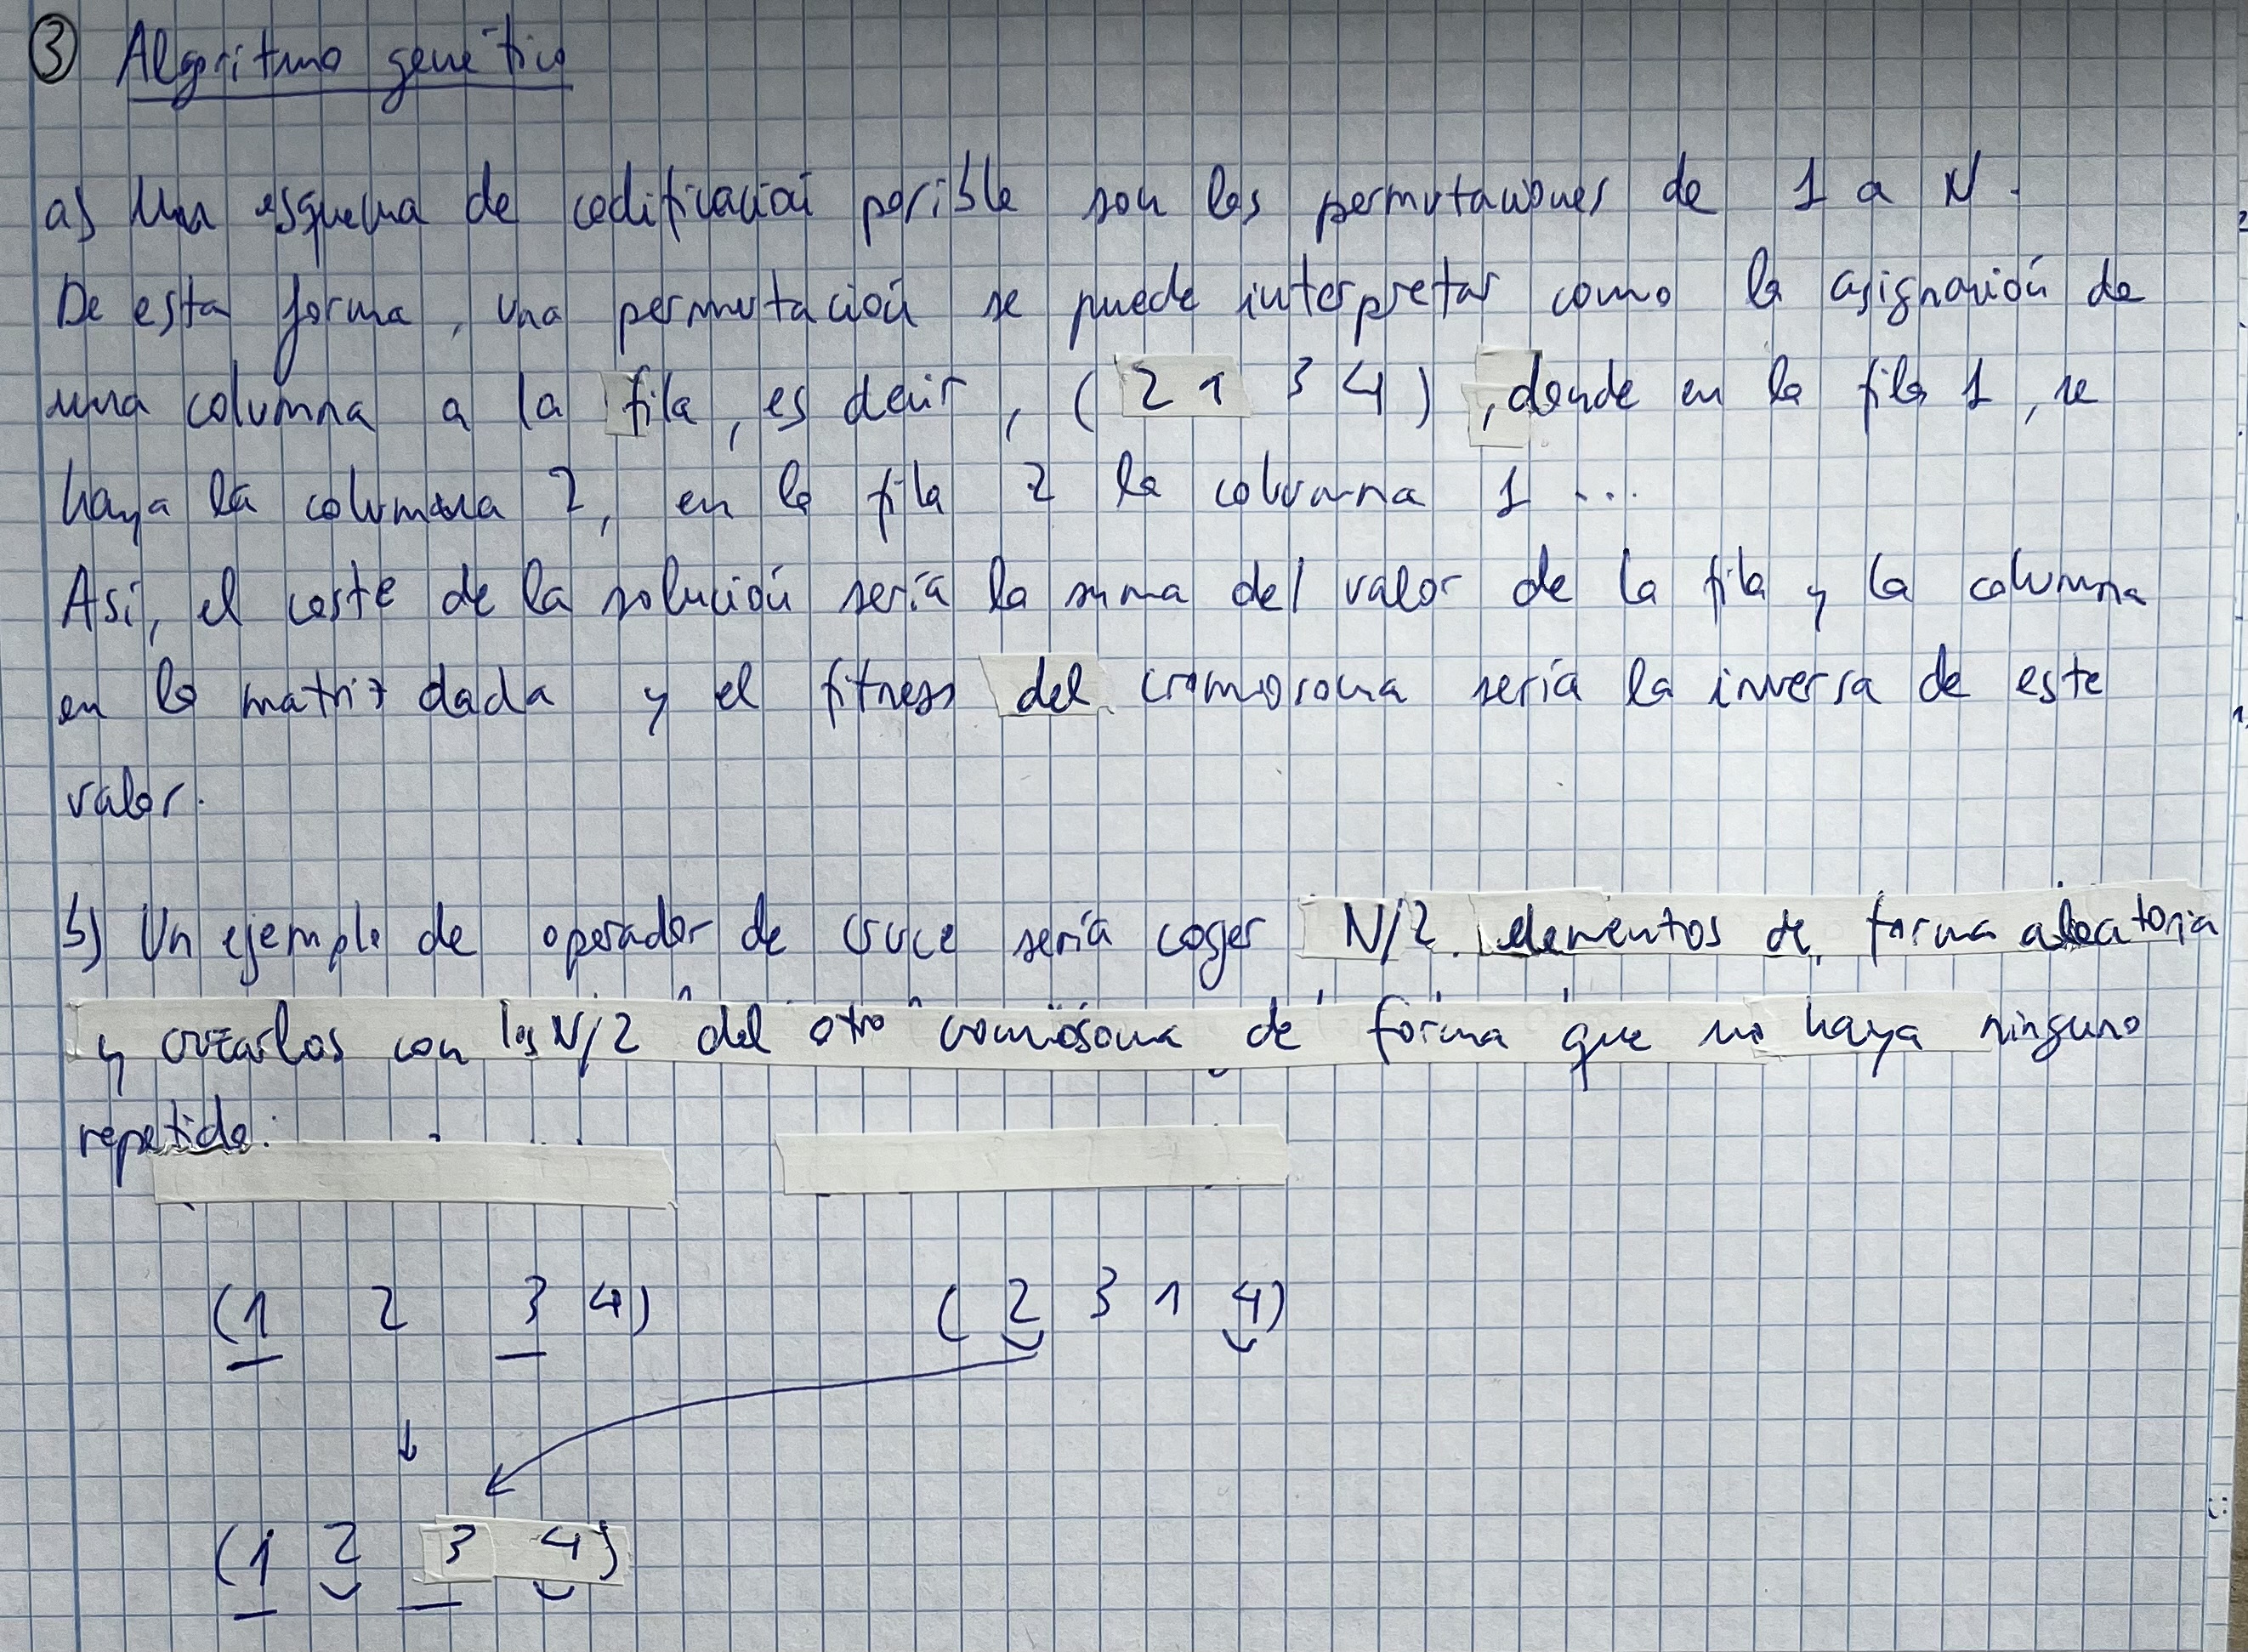 ③ Algoritmo genético
a) Un esquema de codificación posible son las permutaciones de 1 a N.
De esta forma, una permutación se puede interpretar como la asignación de
una columna a la fila, es decir, (2 1 3 4), donde en la fila 1, se
haya la columna 2, en la fila 2 la columna 1 ...
Así, el coste de la solución sería la suma del valor de la fila y la columna
en la matriz dada y el fitness del cromosoma sería la inversa de este
valor.
b) Un ejemplo de operador de cruce sería coger N/2 elementos de forma aleatoria
y cruzarlos con los N/2 del otro cromosoma de forma que no haya ninguno
repetido.
(1 2 3 4) (2 3 1 4)
(1 2 3 4)